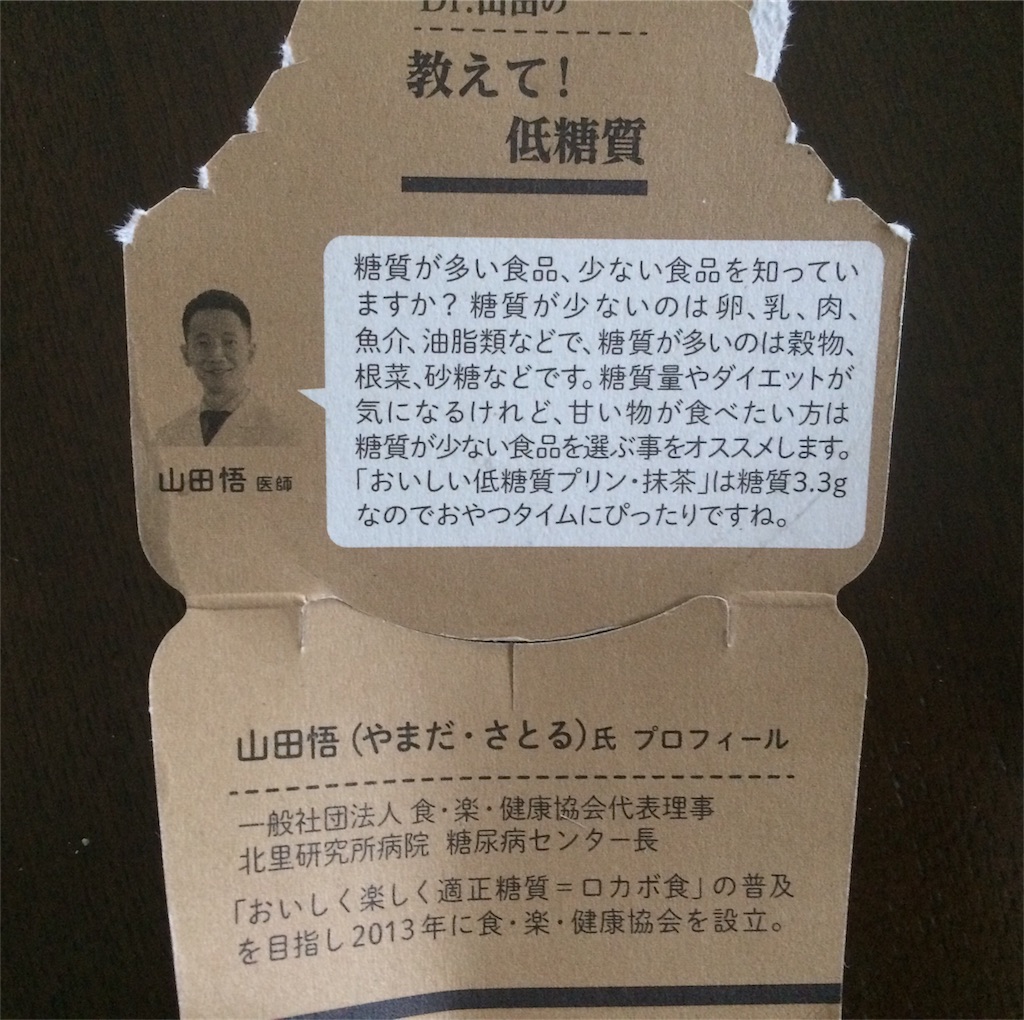 Dr.山田の
教えて!
低糖質
糖質が多い食品、少ない食品を知ってい
ますか? 糖質が少ないのは卵、乳、肉、
魚介、油脂類などで、糖質が多いのは穀物、
根菜、砂糖などです。糖質量やダイエットが
気になるけれど、甘い物が食べたい方は
糖質が少ない食品を選ぶ事をオススメします。
「おいしい低糖質プリン・抹茶」は糖質3.3g
なのでおやつタイムにぴったりですね。
山田悟 医師
山田悟(やまだ・さとる)氏 プロフィール
一般社団法人 食・楽・健康協会代表理事
北里研究所病院 糖尿病センター長
「おいしく楽しく適正糖質=ロカボ食」の普及
を目指し2013年に食・楽・健康協会を設立。